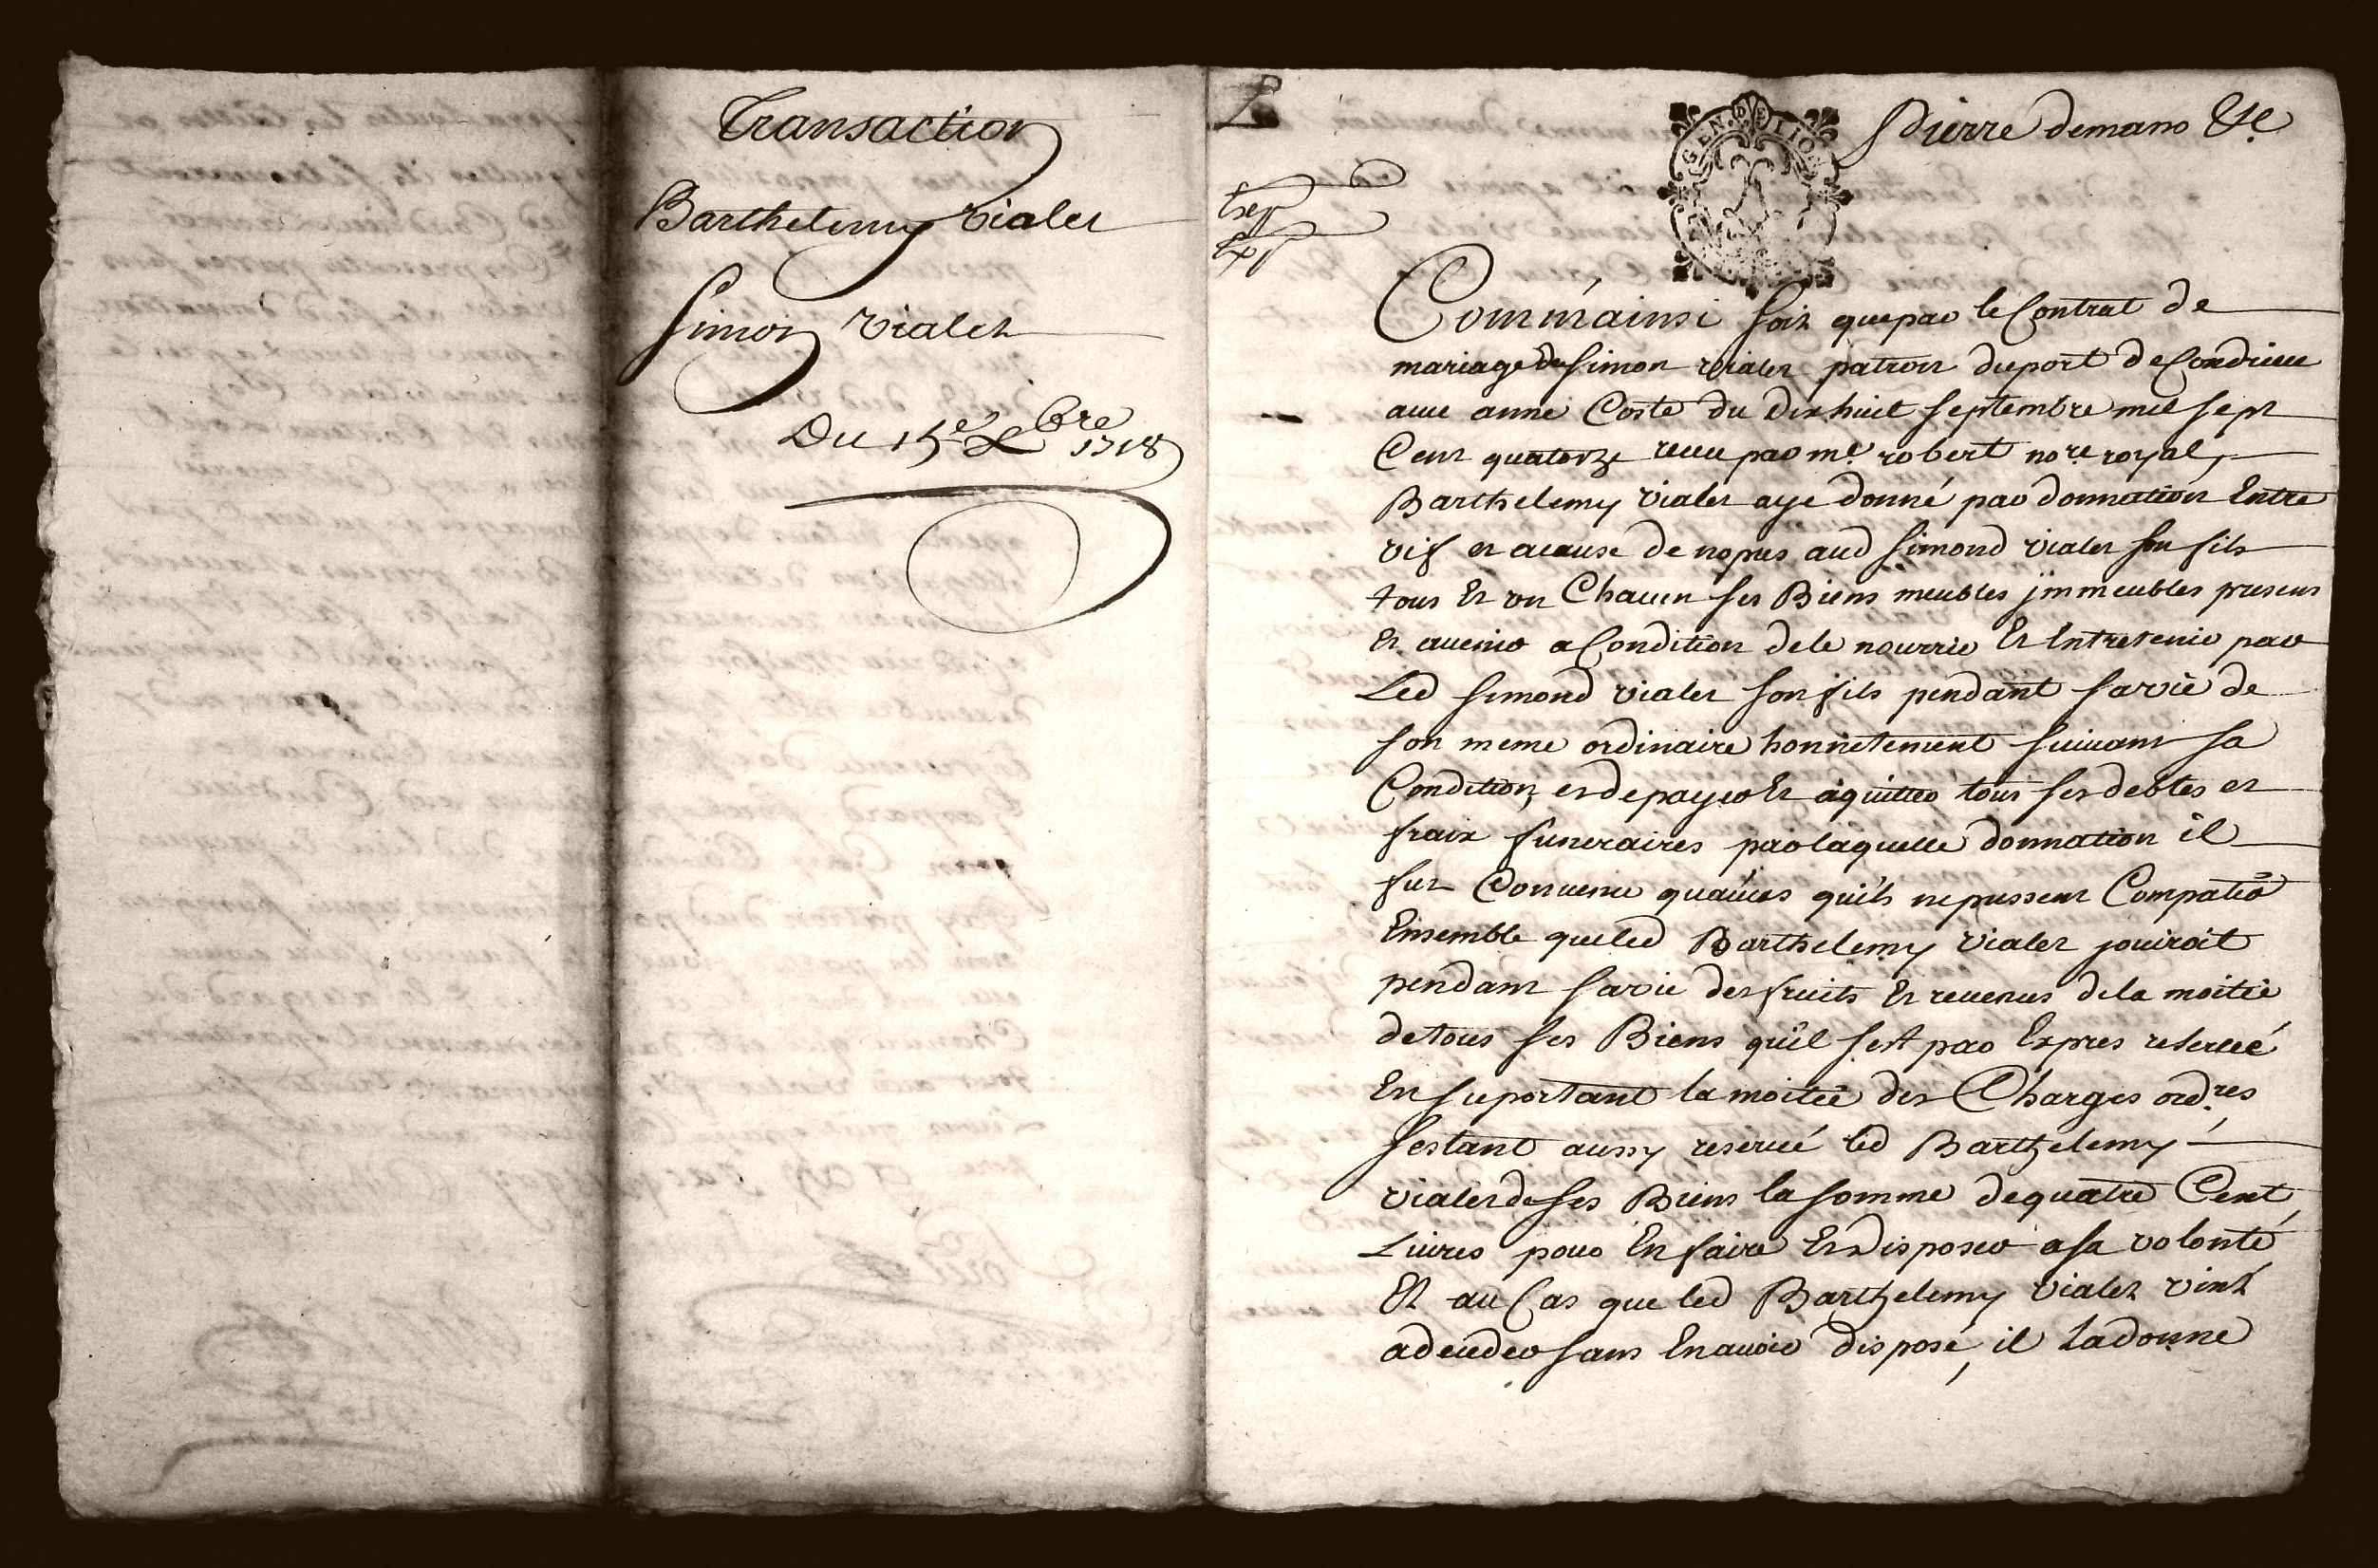 Transaction
Barthelemy vialet
Simon vialet
Du 15e Xbre 1718
GEN. DE LION
Pierre demans &c
Comm'ainsi soit que par le Contrat de
mariage de Simon vialet patron du port de Condrieu
avec anne Coste du dixhuit septembre mil sept
Cent quatorze receu par me robert nore royal,
Barthelemy vialet aye donné par donnation Entre
vif et acause de nopces aud Simond vialet son fils
tous Et un Chacun ses Biens meubles jmmeubles presens
Et avenir a Condition de le nourrir Et Entretenir par
Led Simond vialet son fils pendant sa vie de
son meme ordinaire honnêtement suivant sa
Condition, et de payer Et aquitter tous ses debtes et
fraix funeraires par laquelle donnation il
fut Convenu qu'au cas qu'ils ne pussent Compatir
Ensemble que led Barthelemy vialet jouiroit
pendant sa vie des fruits Et revenus de la moitié
de tous ses Biens qu'il s'est par Expres reservé
En suportant la moitié des Charges ordres
s'estant aussy reservé led Barthelemy
vialet de ses Biens la somme de quatre Cent
Livres pour En faire Et disposer a sa volonté
Et au Cas que led Barthelemy vialet vint
a deceder sans En avoir disposé, il la donne